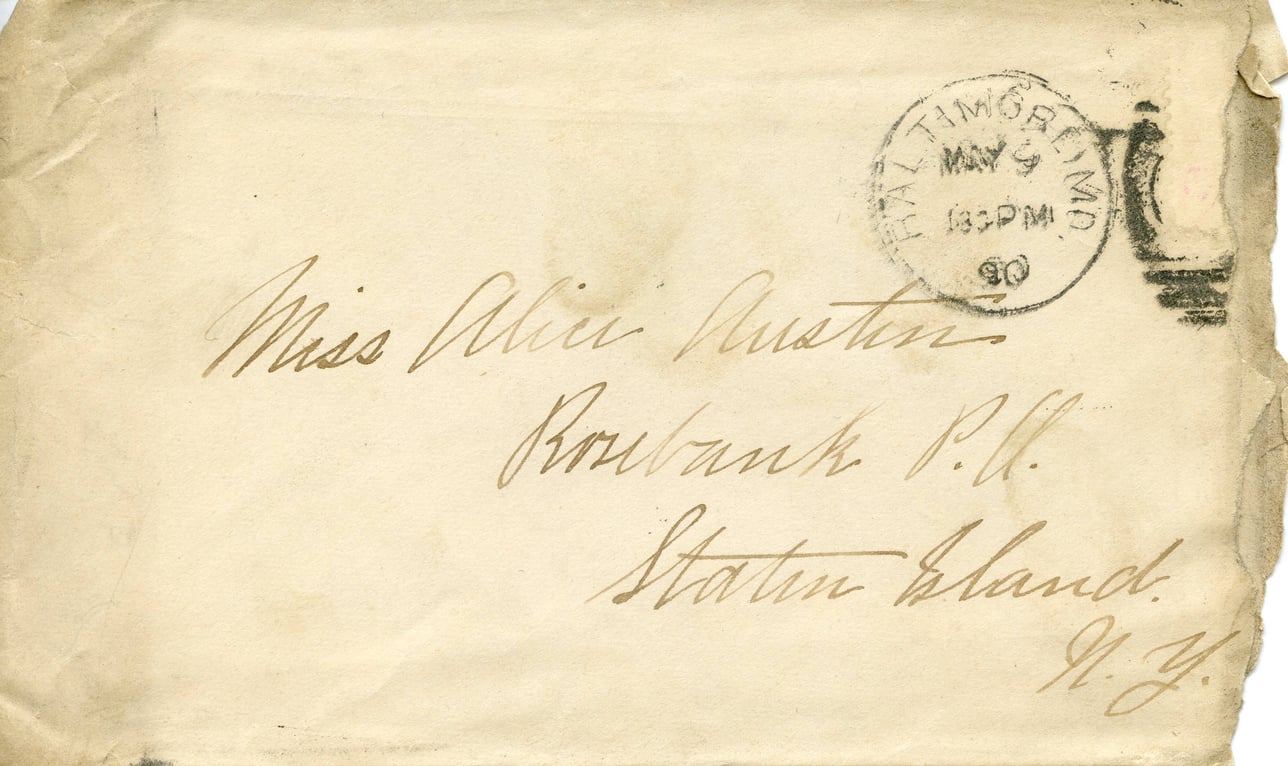 BALTIMORE, MD.
MAY 9
PM
90
Miss Alice Austen
Rosebank P.O.
Staten Island.
N.Y.